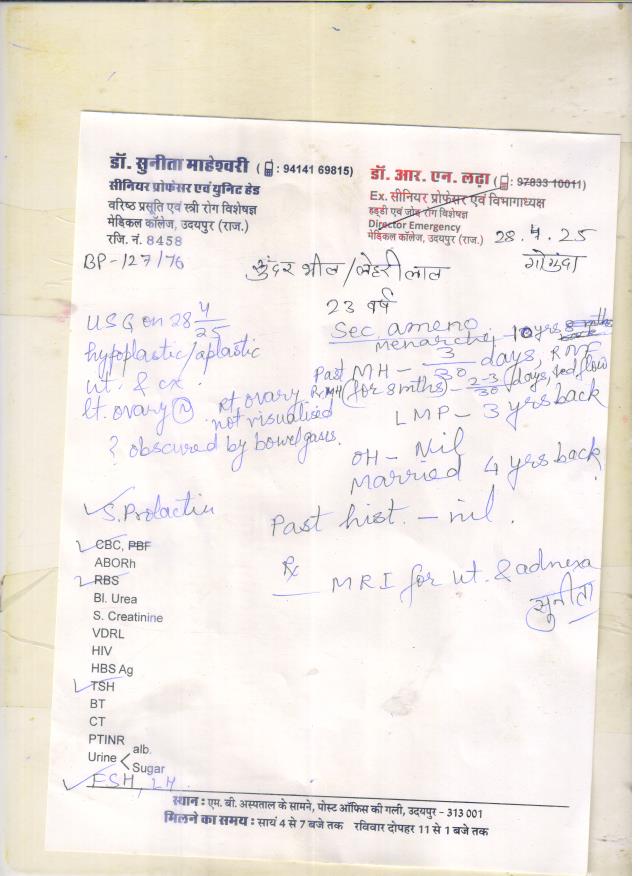 डॉ. सुनीता माहेश्वरी (: 94141 69815)
सीनियर प्रोफेसर एवं युनिट हेड
वरिष्ठ प्रसूति एवं स्त्री रोग विशेषज्ञ
मेडिकल कॉलेज, उदयपुर (राज.)
रजि. नं. 8458
डॉ. आर. एन. लढ़ा (: 97833 10011)
Ex. सीनियर प्रोफेसर एवं विभागाध्यक्ष
हड्डी एवं जोड़ रोग विशेषज्ञ
Director Emergency
मेडिकल कॉलेज, उदयपुर (राज.)
28.4.25
BP-127/76
सुंदर भील/लेहरीलाल
गोगुंदा
23 वर्ष
USG on 28 4/25
hypoplastic/aplastic
ut. & cx.
lt. ovary (N) Rt ovary
not visualised
? obscured by bowel gases.
Sec ameno
Menarche 10 yrs
Past MH - 3/30 days, RNF
(for 8 mths) - 2-3/30 days, flow
LMP - 3 yrs back
OH - Nil
Married 4 yrs back
Past hist. - nil.
S. Prolactin
CBC, PBF
ABORh
RBS
Bl. Urea
S. Creatinine
VDRL
HIV
HBS Ag
TSH
BT
CT
PTINR
Urine < alb.
Sugar
FSH, LH
Rx
MRI for ut. & adnexa
सुनीता
स्थान : एम. बी. अस्पताल के सामने, पोस्ट ऑफिस की गली, उदयपुर - 313 001
मिलने का समय : सायं 4 से 7 बजे तक रविवार दोपहर 11 से 1 बजे तक